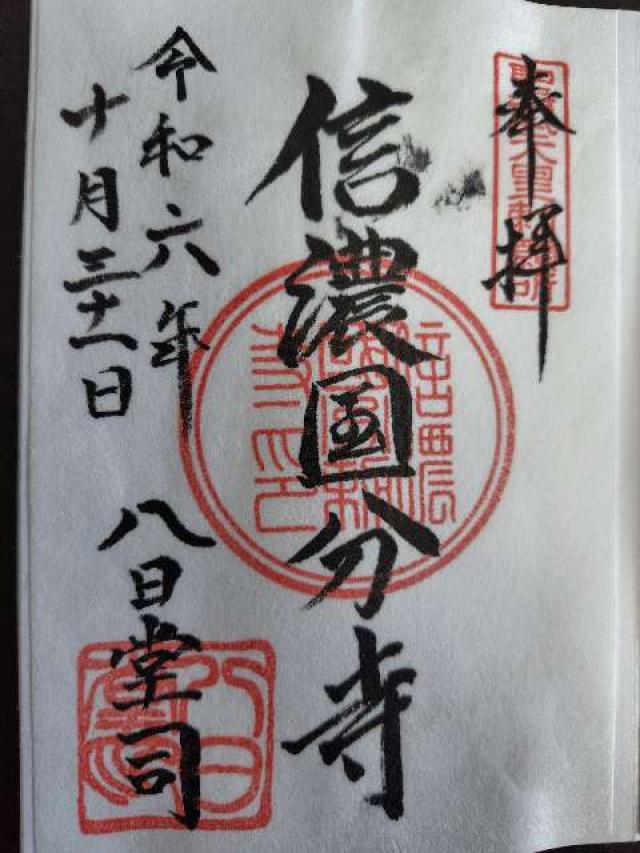 奉拝
信濃国分寺
令和六年
十月三十一日
八日堂司